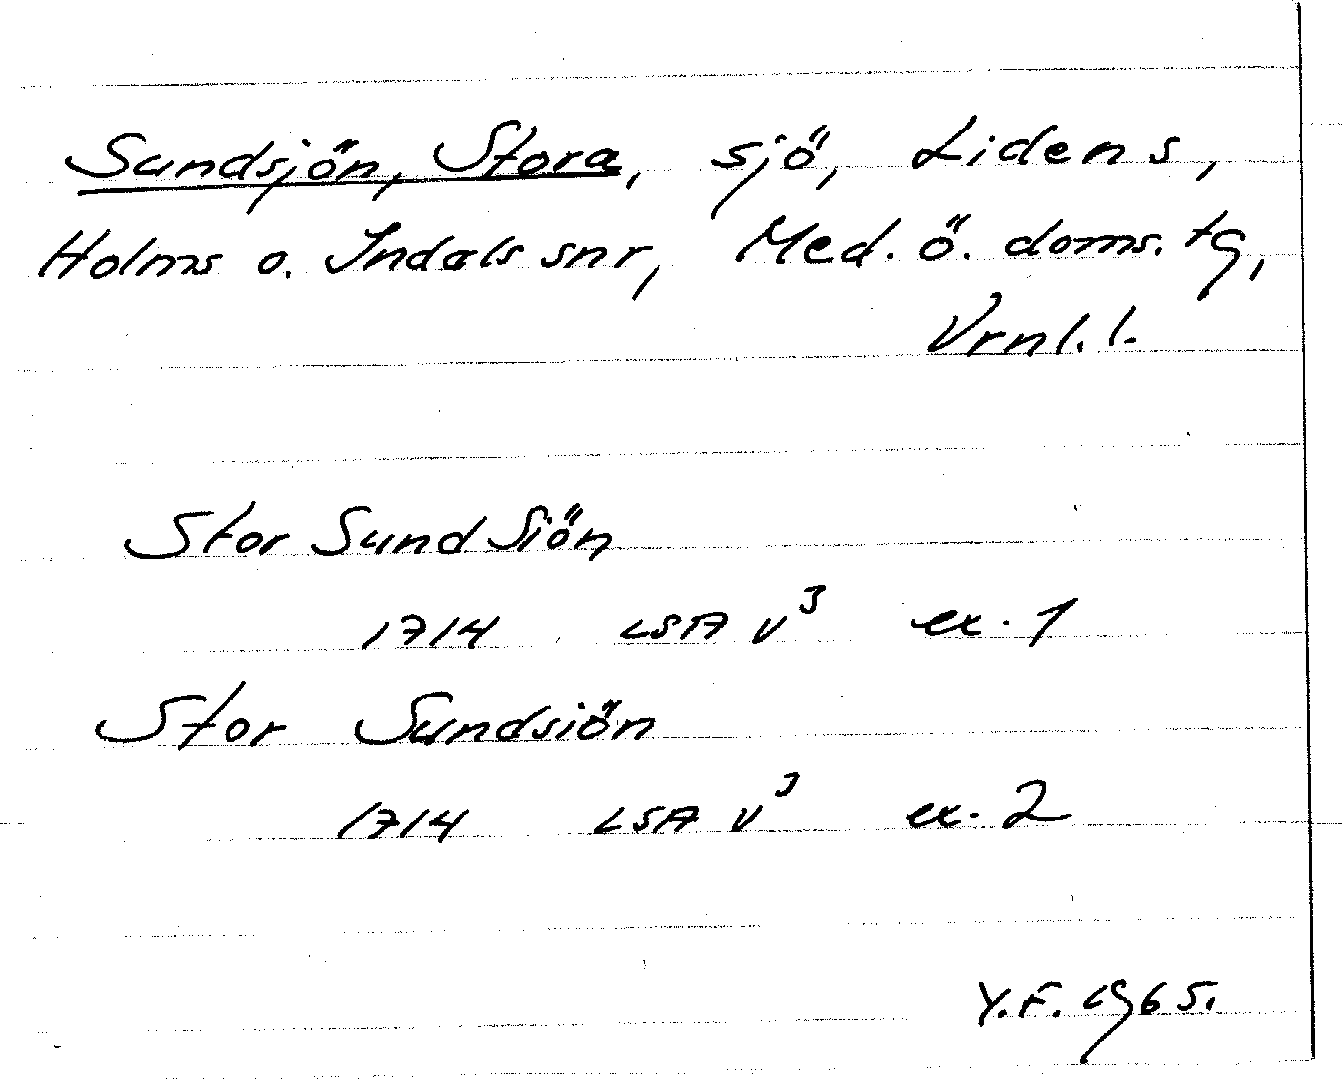 Sundsjön, Stora, sjö, Lidens,
Holms o. Indals snr, Med. ö. doms. tg,
Vrnl. l.
Stor Sund Siön
1714 LSA V³ ex. 1
Stor Sundsiön
1714 LSA V³ ex. 2
Y.F. 1965.